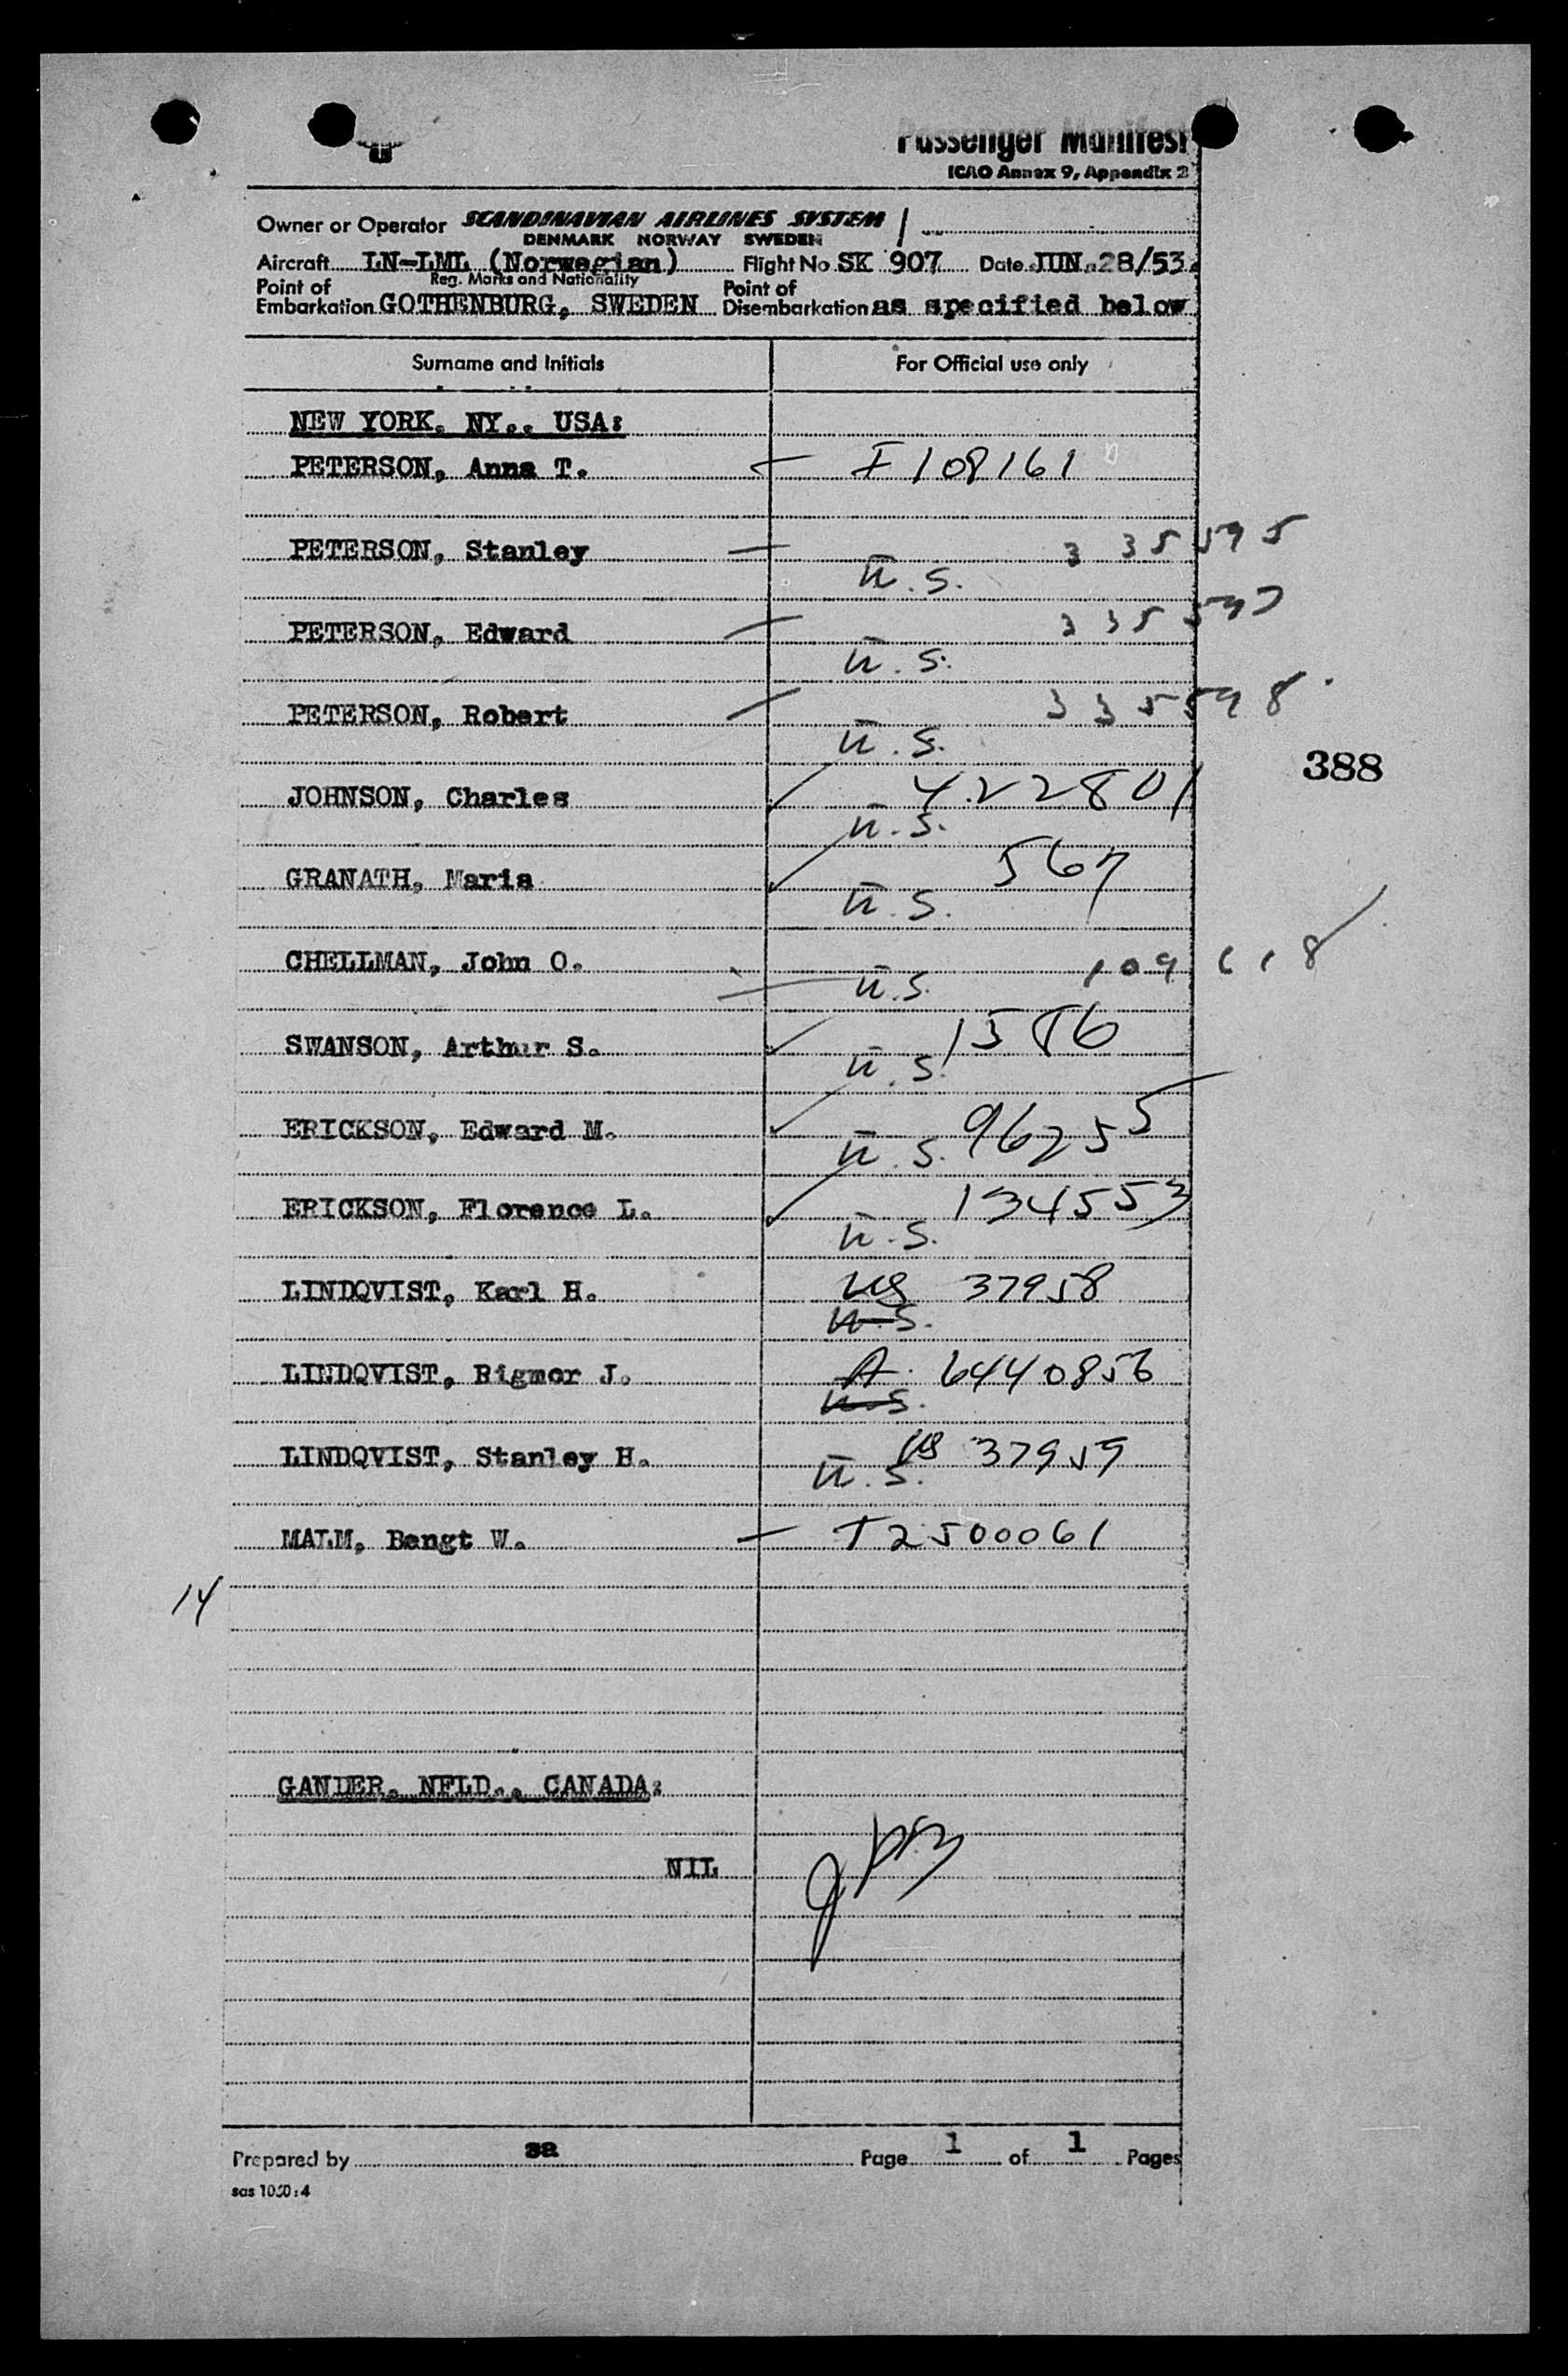 Passenger Manifest
ICAO Annex 9, Appendix 2
Owner or Operator SCANDINAVIAN AIRLINES SYSTEM
DENMARK NORWAY SWEDEN
Aircraft LN-LML (Norwegian) Flight No. SK 907 Date JUN. 28/53.
Reg. Marks and Nationality
Point of Embarkation GOTHENBURG, SWEDEN Point of Disembarkation as specified below
Surname and Initials For Official use only
NEW YORK. NY., USA:
PETERSON, Anna T. I 108161
PETERSON, Stanley 335595
U.S.
PETERSON, Edward 335597
U.S.
PETERSON, Robert 335598
U.S.
388
JOHNSON, Charles 422801
U.S.
GRANATH, Maria 567
U.S.
CHELLMAN, John O. 109618
U.S.
SWANSON, Arthur S. 1586
U.S.
ERICKSON, Edward M. 96255
U.S.
ERICKSON, Florence L. 134553
U.S.
LINDQVIST, Karl H. US 37958
U.S.
LINDQVIST, Rigmor J. A 6440856
U.S.
LINDQVIST, Stanley H. US 37959
U.S.
MALM, Bengt W. T 2500061
14
GANDER. NFLD., CANADA:
NIL
Prepared by sa Page 1 of 1 Pages
sas 1050:4